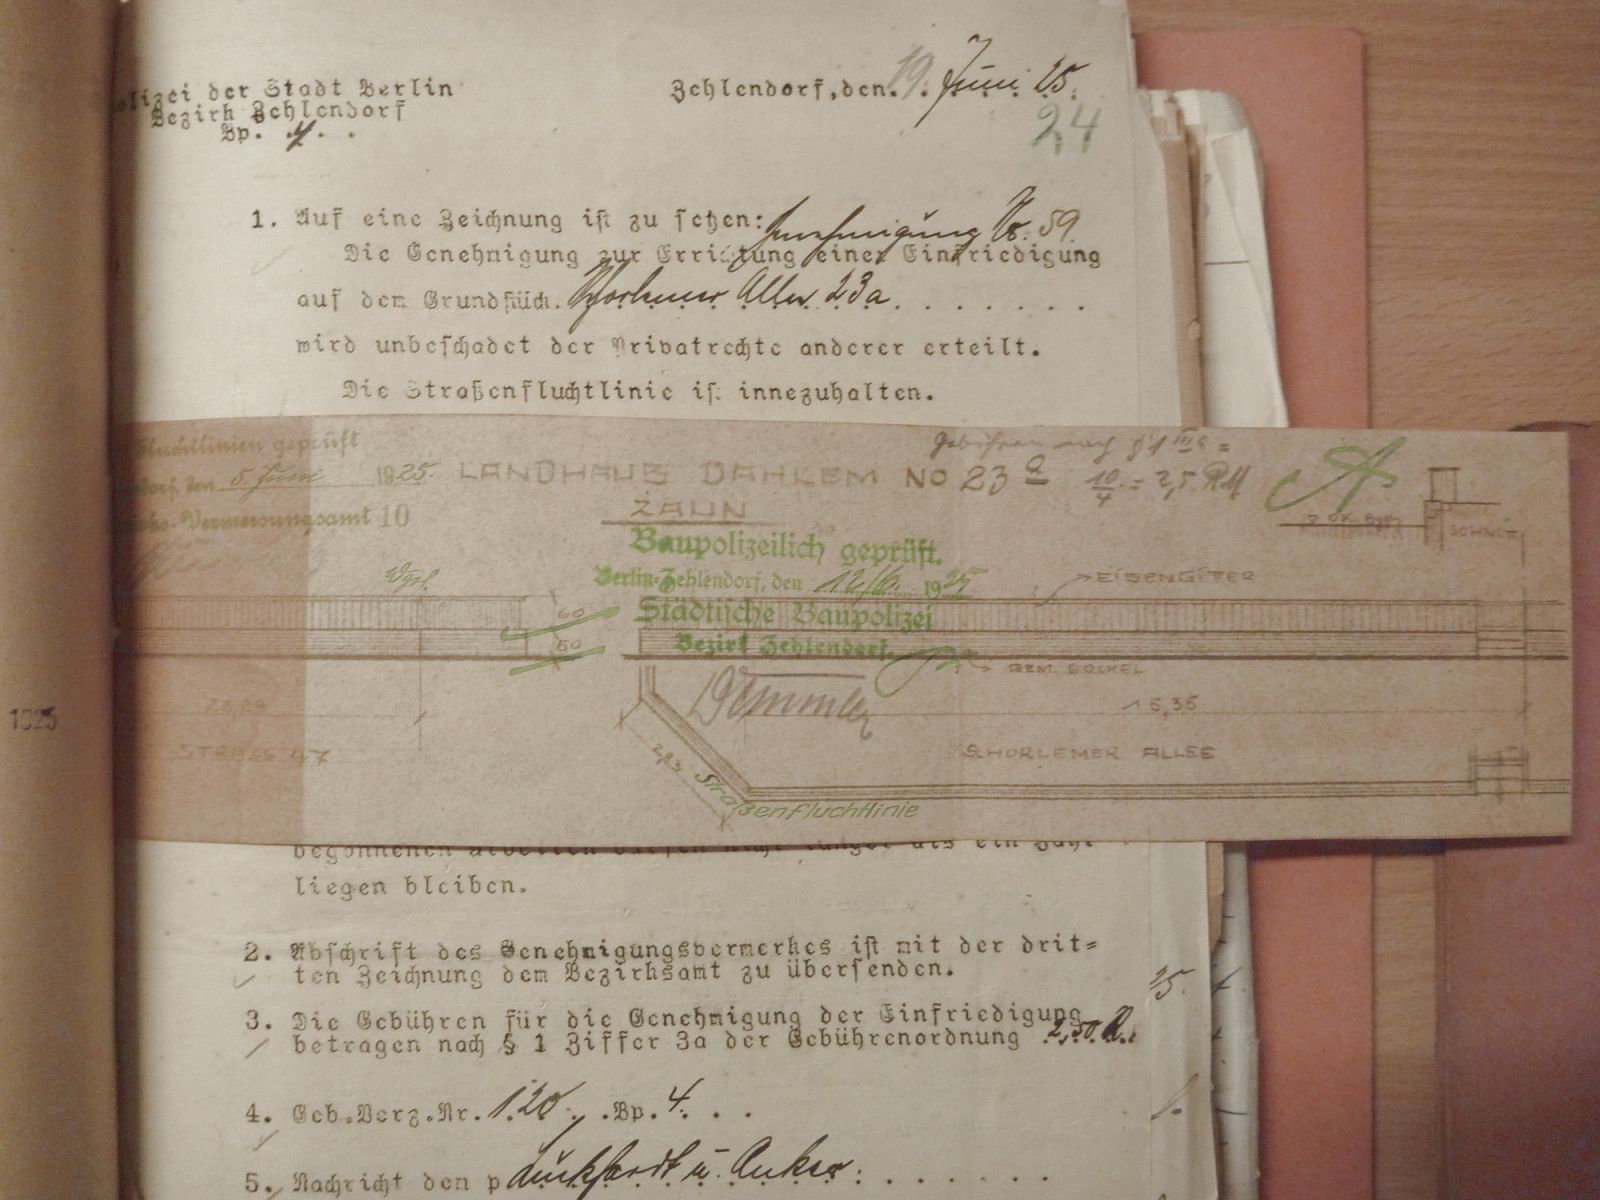 olizei der Stadt Berlin
Bezirk Zehlendorf
Bp. 4. . .
Zehlendorf,den. 19. Juni 25.
24
1. Auf eine Zeichnung ist zu setzen: Genehmigung Nr. 59.
Die Genehmigung zur Errichtung einer Einfriedigung
auf dem Grundstück. Schorlemer Allee 23a. . . . . . .
wird unbeschadet der Privatrechte anderer erteilt.
Die Straßenfluchtlinie ist innezuhalten.
Fluchtlinien geprüft
dorf, den 5. Juni 1925.
Vermessungsamt 10
Gebühren nach § 1 III a =
LANDHAUS DAHLEM NO 23 a
10/4 = 2,5 RM
ZAUN
SCHNITT
Baupolizeilich geprüft.
Berlin-Zehlendorf, den 12/6. 1925
Städtische Baupolizei
Bezirk Zehlendorf.
EISENGITTER
60
50
GEM. SOCKEL
15,35
1925
STRASSE 47
SCHORLEMER ALLEE
2,83
Straßenfluchtlinie
begonnenen Arbeiten dürfen nicht länger als ein Jahr
liegen bleiben.
2. Abschrift des Genehmigungsvermerkes ist mit der drit=
ten Zeichnung dem Bezirksamt zu übersenden.
3. Die Gebühren für die Genehmigung der Einfriedigung
betragen nach § 1 Ziffer 3a der Gebührenordnung 2,50 R.
4. Geb.Verz.Nr. 120. . .Bp. 4. . .
5. Nachricht den p Luckhardt u. Anker. . . . . . .